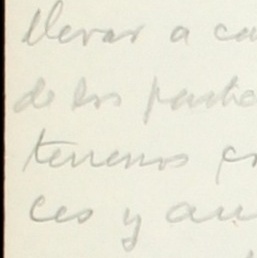 llevar a ca
de los parti
terrenos co
ces y au